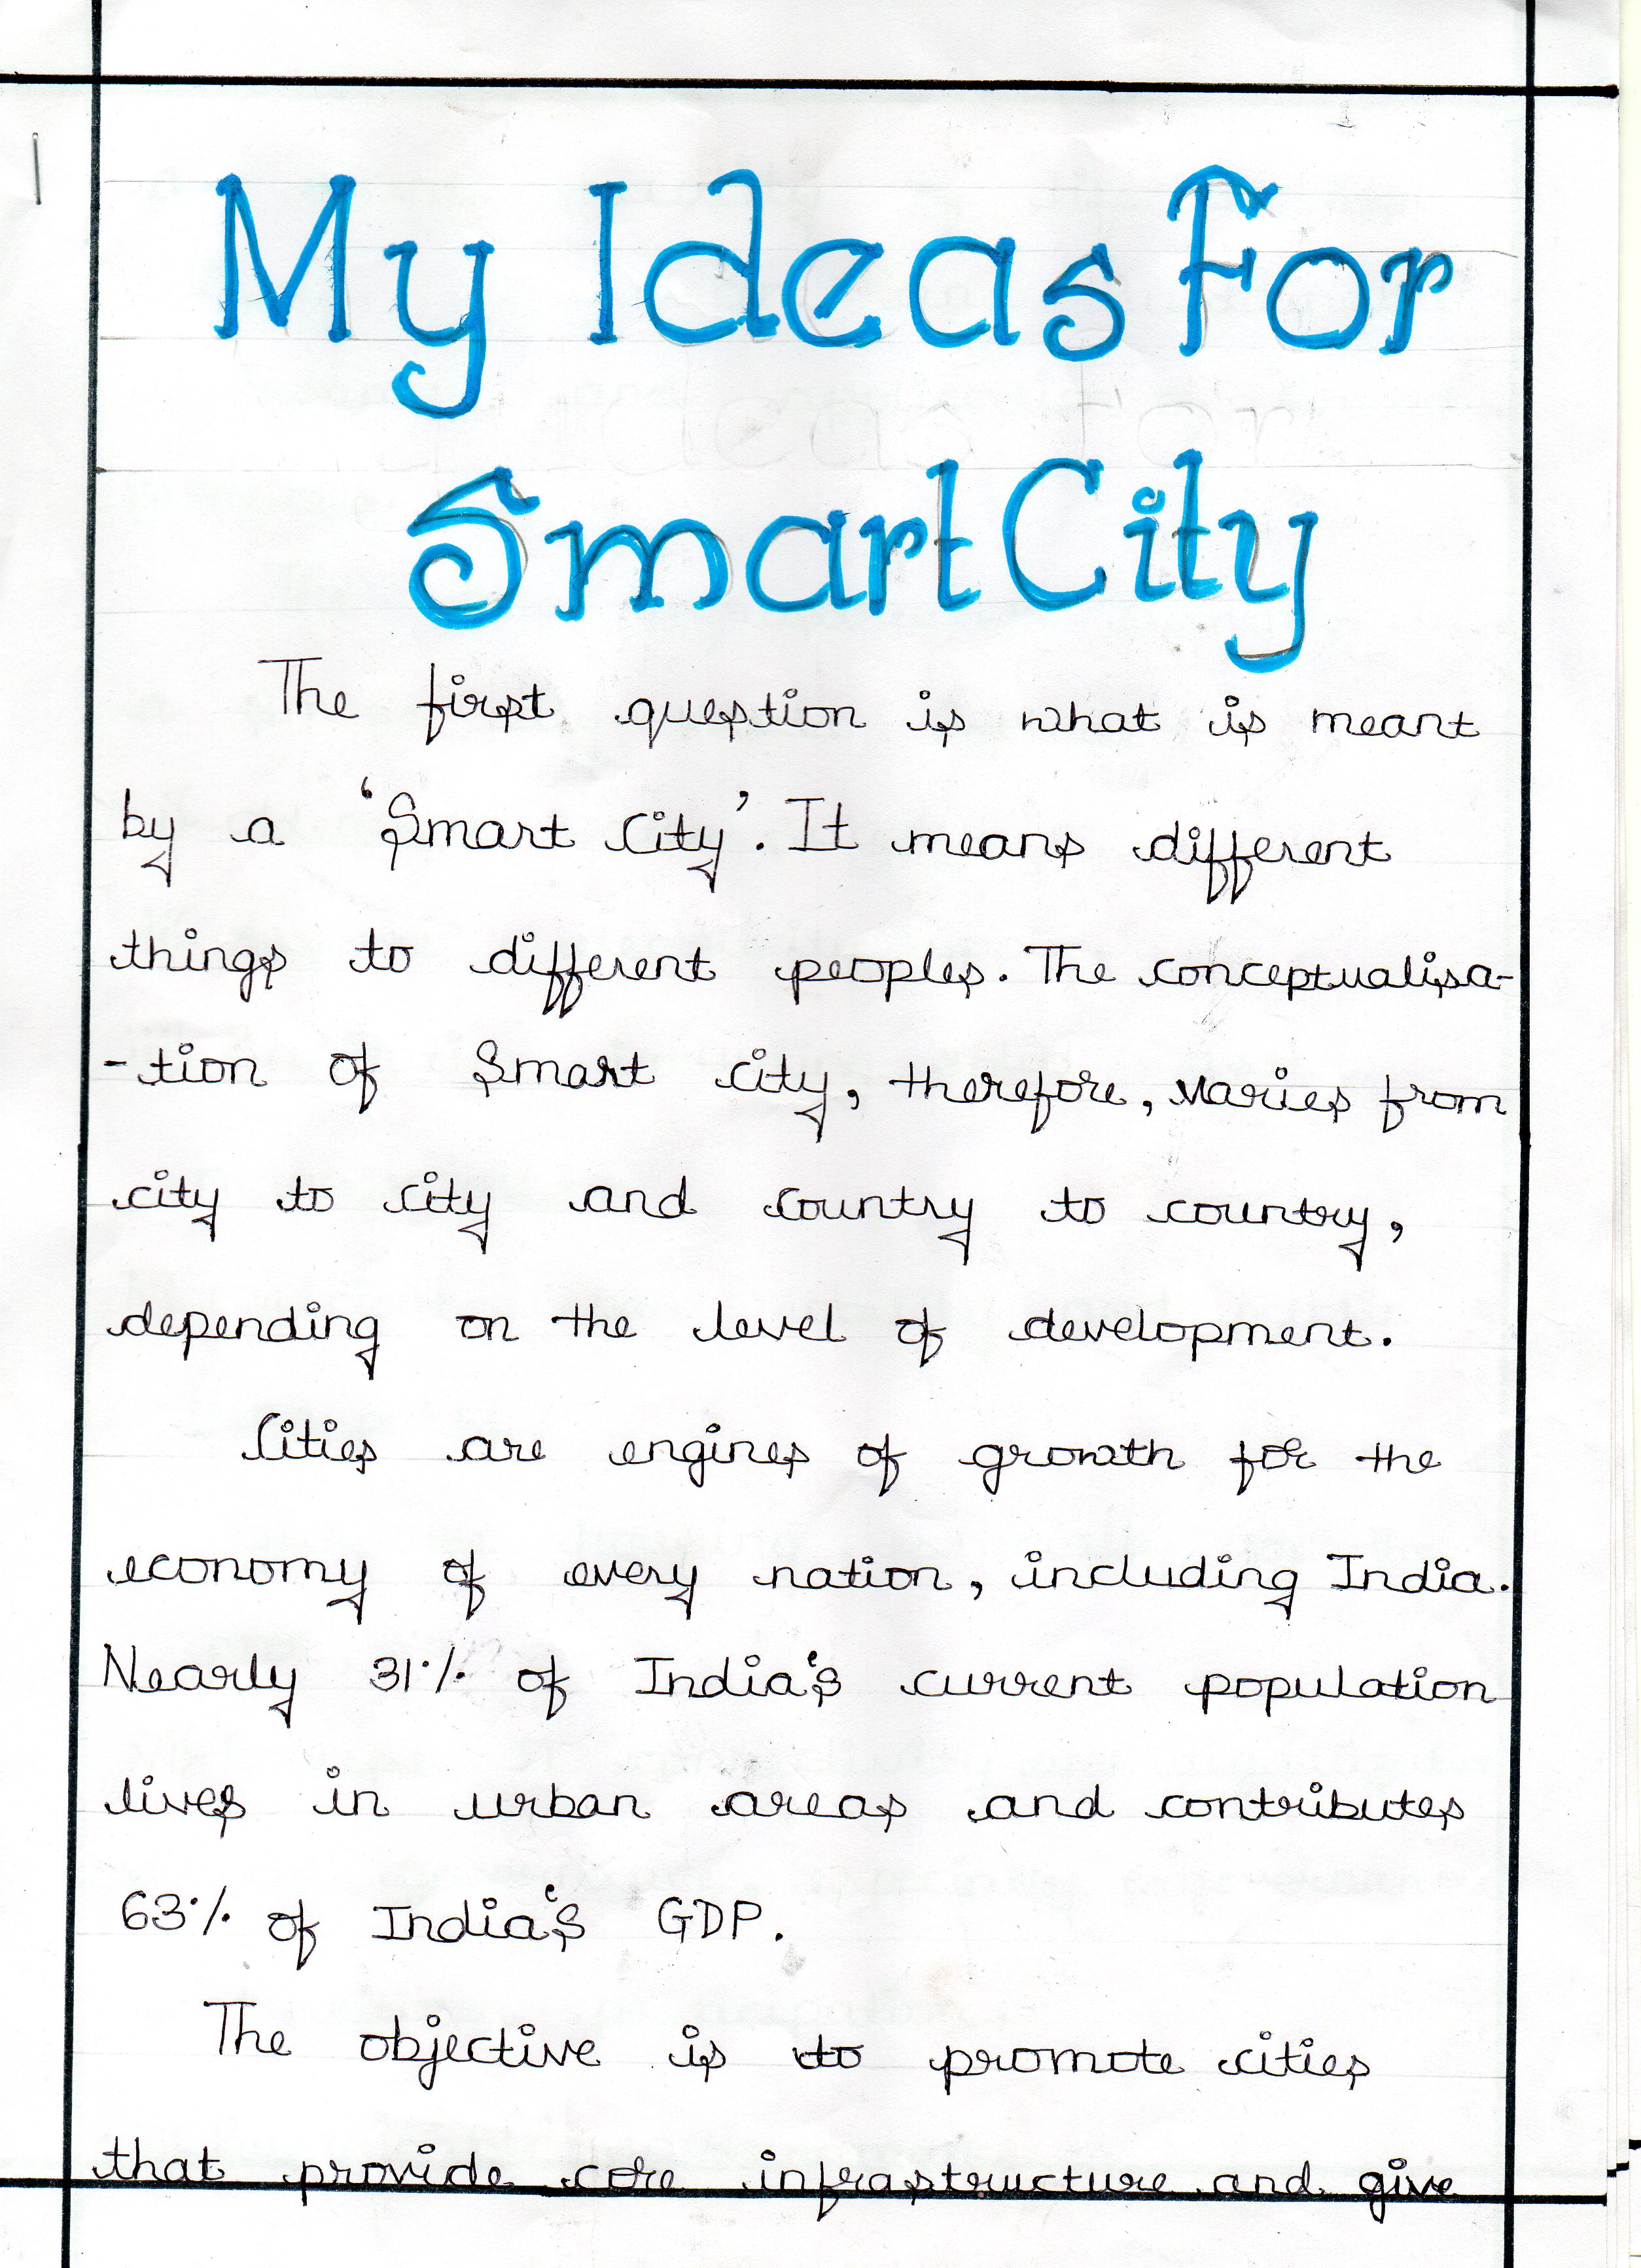 My Ideas For
Smart City
The first question is what is meant
by a 'Smart City'. It means different
things to different peoples. The conceptualisa-
-tion of Smart city, therefore, varies from
city to city and country to country,
depending on the level of development.
Cities are engines of growth for the
economy of every nation, including India.
Nearly 31% of India's current population
lives in urban areas and contributes
63% of India's GDP.
The objective is to promote cities
that provide core infrastructure and give